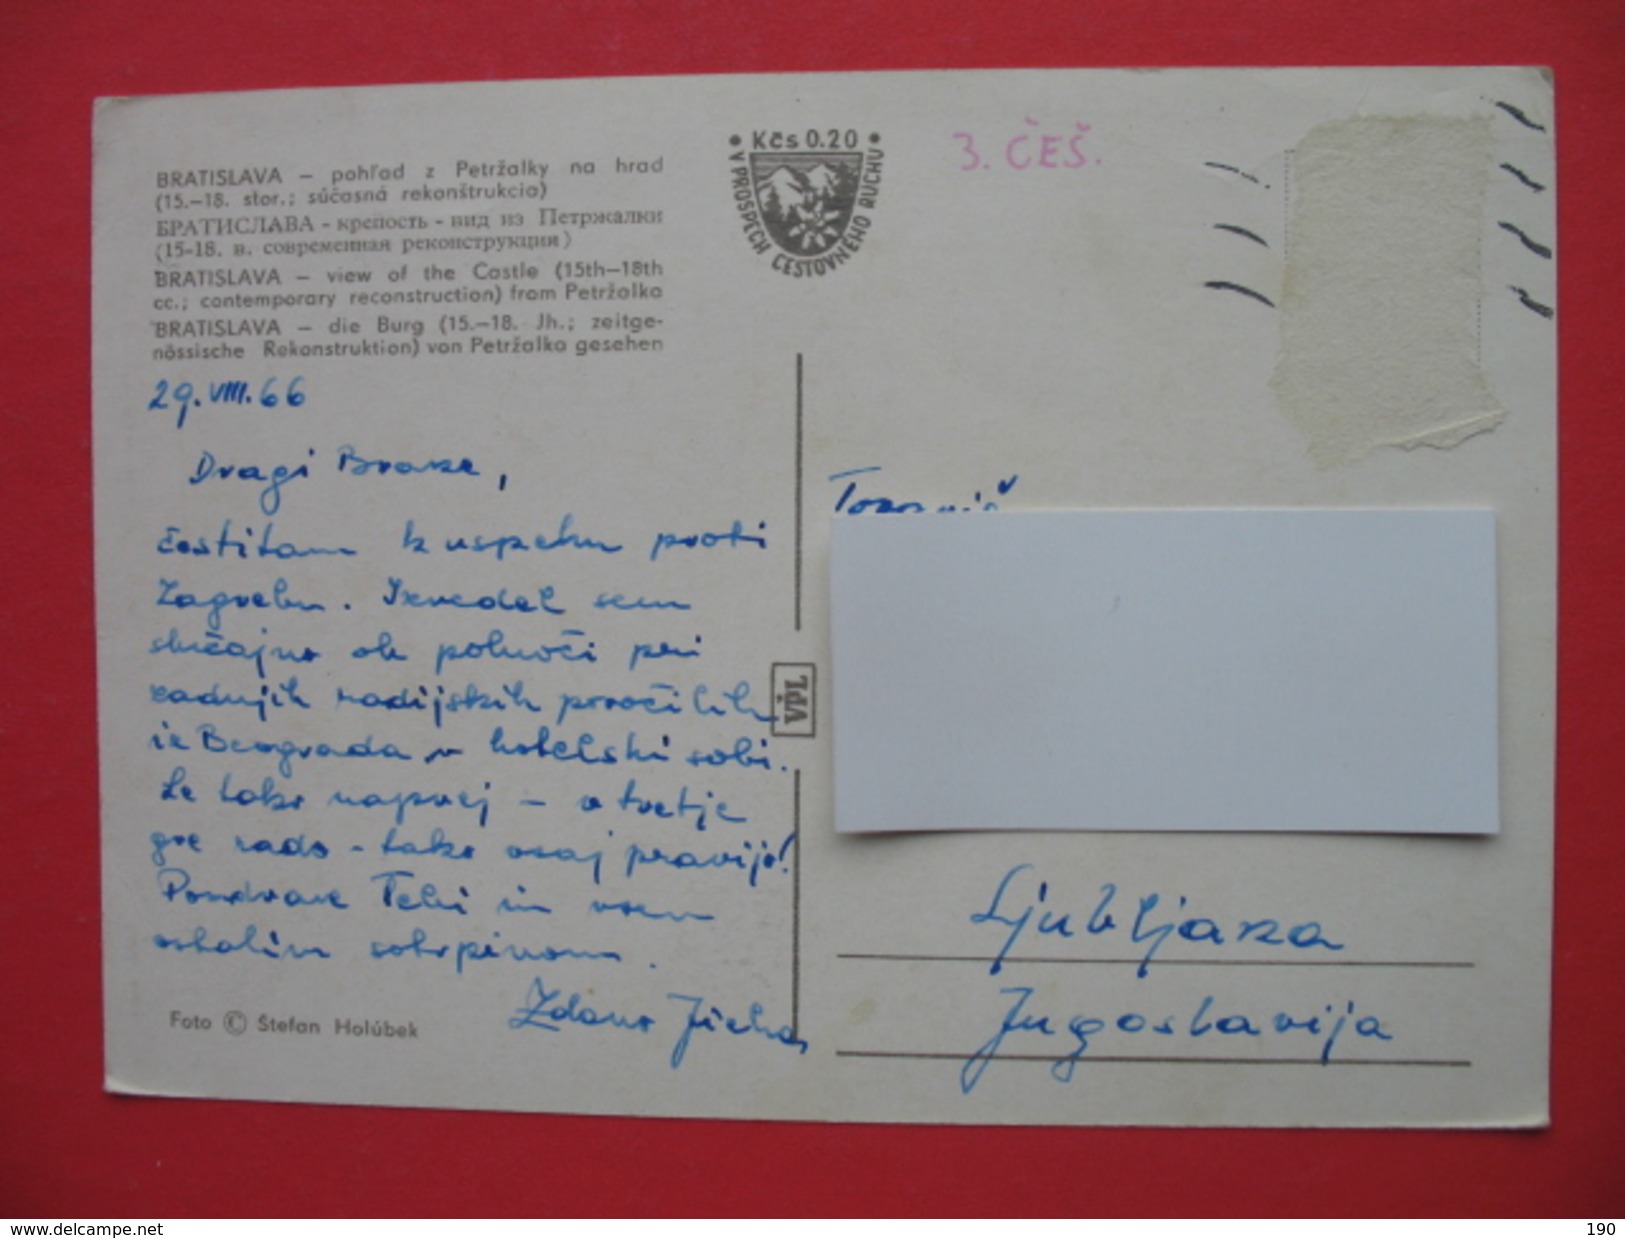 BRATISLAVA – pohľad z Petržalky na hrad
(15.–18. stor.; súčasná rekonštrukcia)
БРАТИСЛАВА - крепость - вид из Петржалки
(15-18. в. современная реконструкция)
BRATISLAVA – view of the Castle (15th–18th
cc.; contemporary reconstruction) from Petržalka
BRATISLAVA – die Burg (15.–18. Jh.; zeitge-
nössische Rekonstruktion) von Petržalka gesehen
29. VIII. 66
Dragi Brane,
čestitam k uspehu proti
Zagrebu. Izvedel sem
slučajno ob polnoči pri
zadnjih radijskih poročilih
iz Beograda v hotelski sobi.
Le tako naprej – v tretje
gre rado – tako vsaj pravijo!
Pozdrave Tebi in vsem
ostalim sotrpinom.
Zdano
Foto © Štefan Holúbek
• Kčs 0.20 •
V PROSPECH CESTOVNÉHO RUCHU
3. ČEŠ.
VPL
Ljubljana
Jugoslavija
www.delcampe.net
190